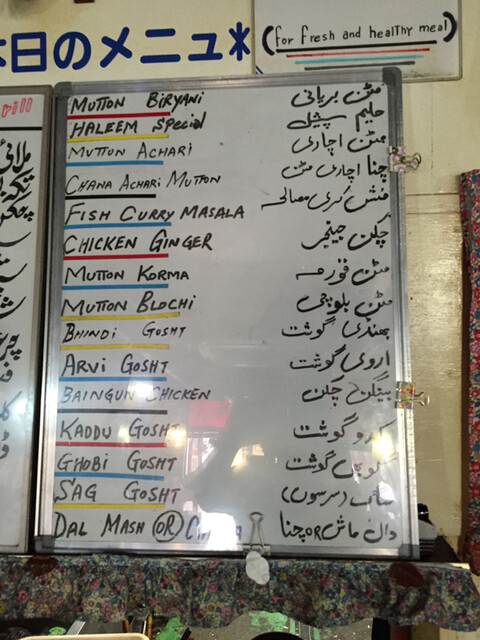 本日のメニュー*
(for fresh and healthy meal)
rill
MUTTON BIRYANI مٹن بریانی
HALEEM Special حلیم سپیشل
MUTTON ACHARI مٹن اچاری
CHANA ACHARI MUTTON چنا اچاری مٹن
FISH CURRY MASALA فش کری مصالحہ
CHICKEN GINGER چکن جینجر
MUTTON KORMA مٹن قورمہ
MUTTON BLOCHI مٹن بلوچی
BHINDI GOSHT بھنڈی گوشت
ARVI GOSHT اروی گوشت
BAINGUN CHICKEN بینگن چکن
KADDU GOSHT کدو گوشت
GHOBI GOSHT گوبھی گوشت
SAG GOSHT ساگ (سرسوں)
DAL MASH (OR) دال ماش OR چنا